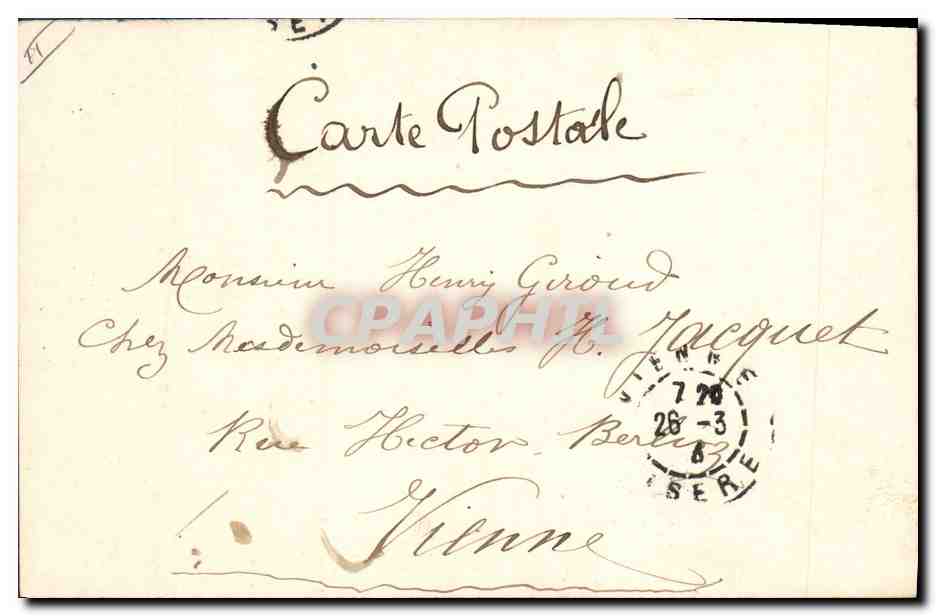 SERE
Carte Postale
Monsieur Henry Giroud
CPAPHIL
Chez Mesdemoiselles H. Jacquet
VIENNE
7 20
26 -3
Rue Hector Berlioz
ISERE
Vienne